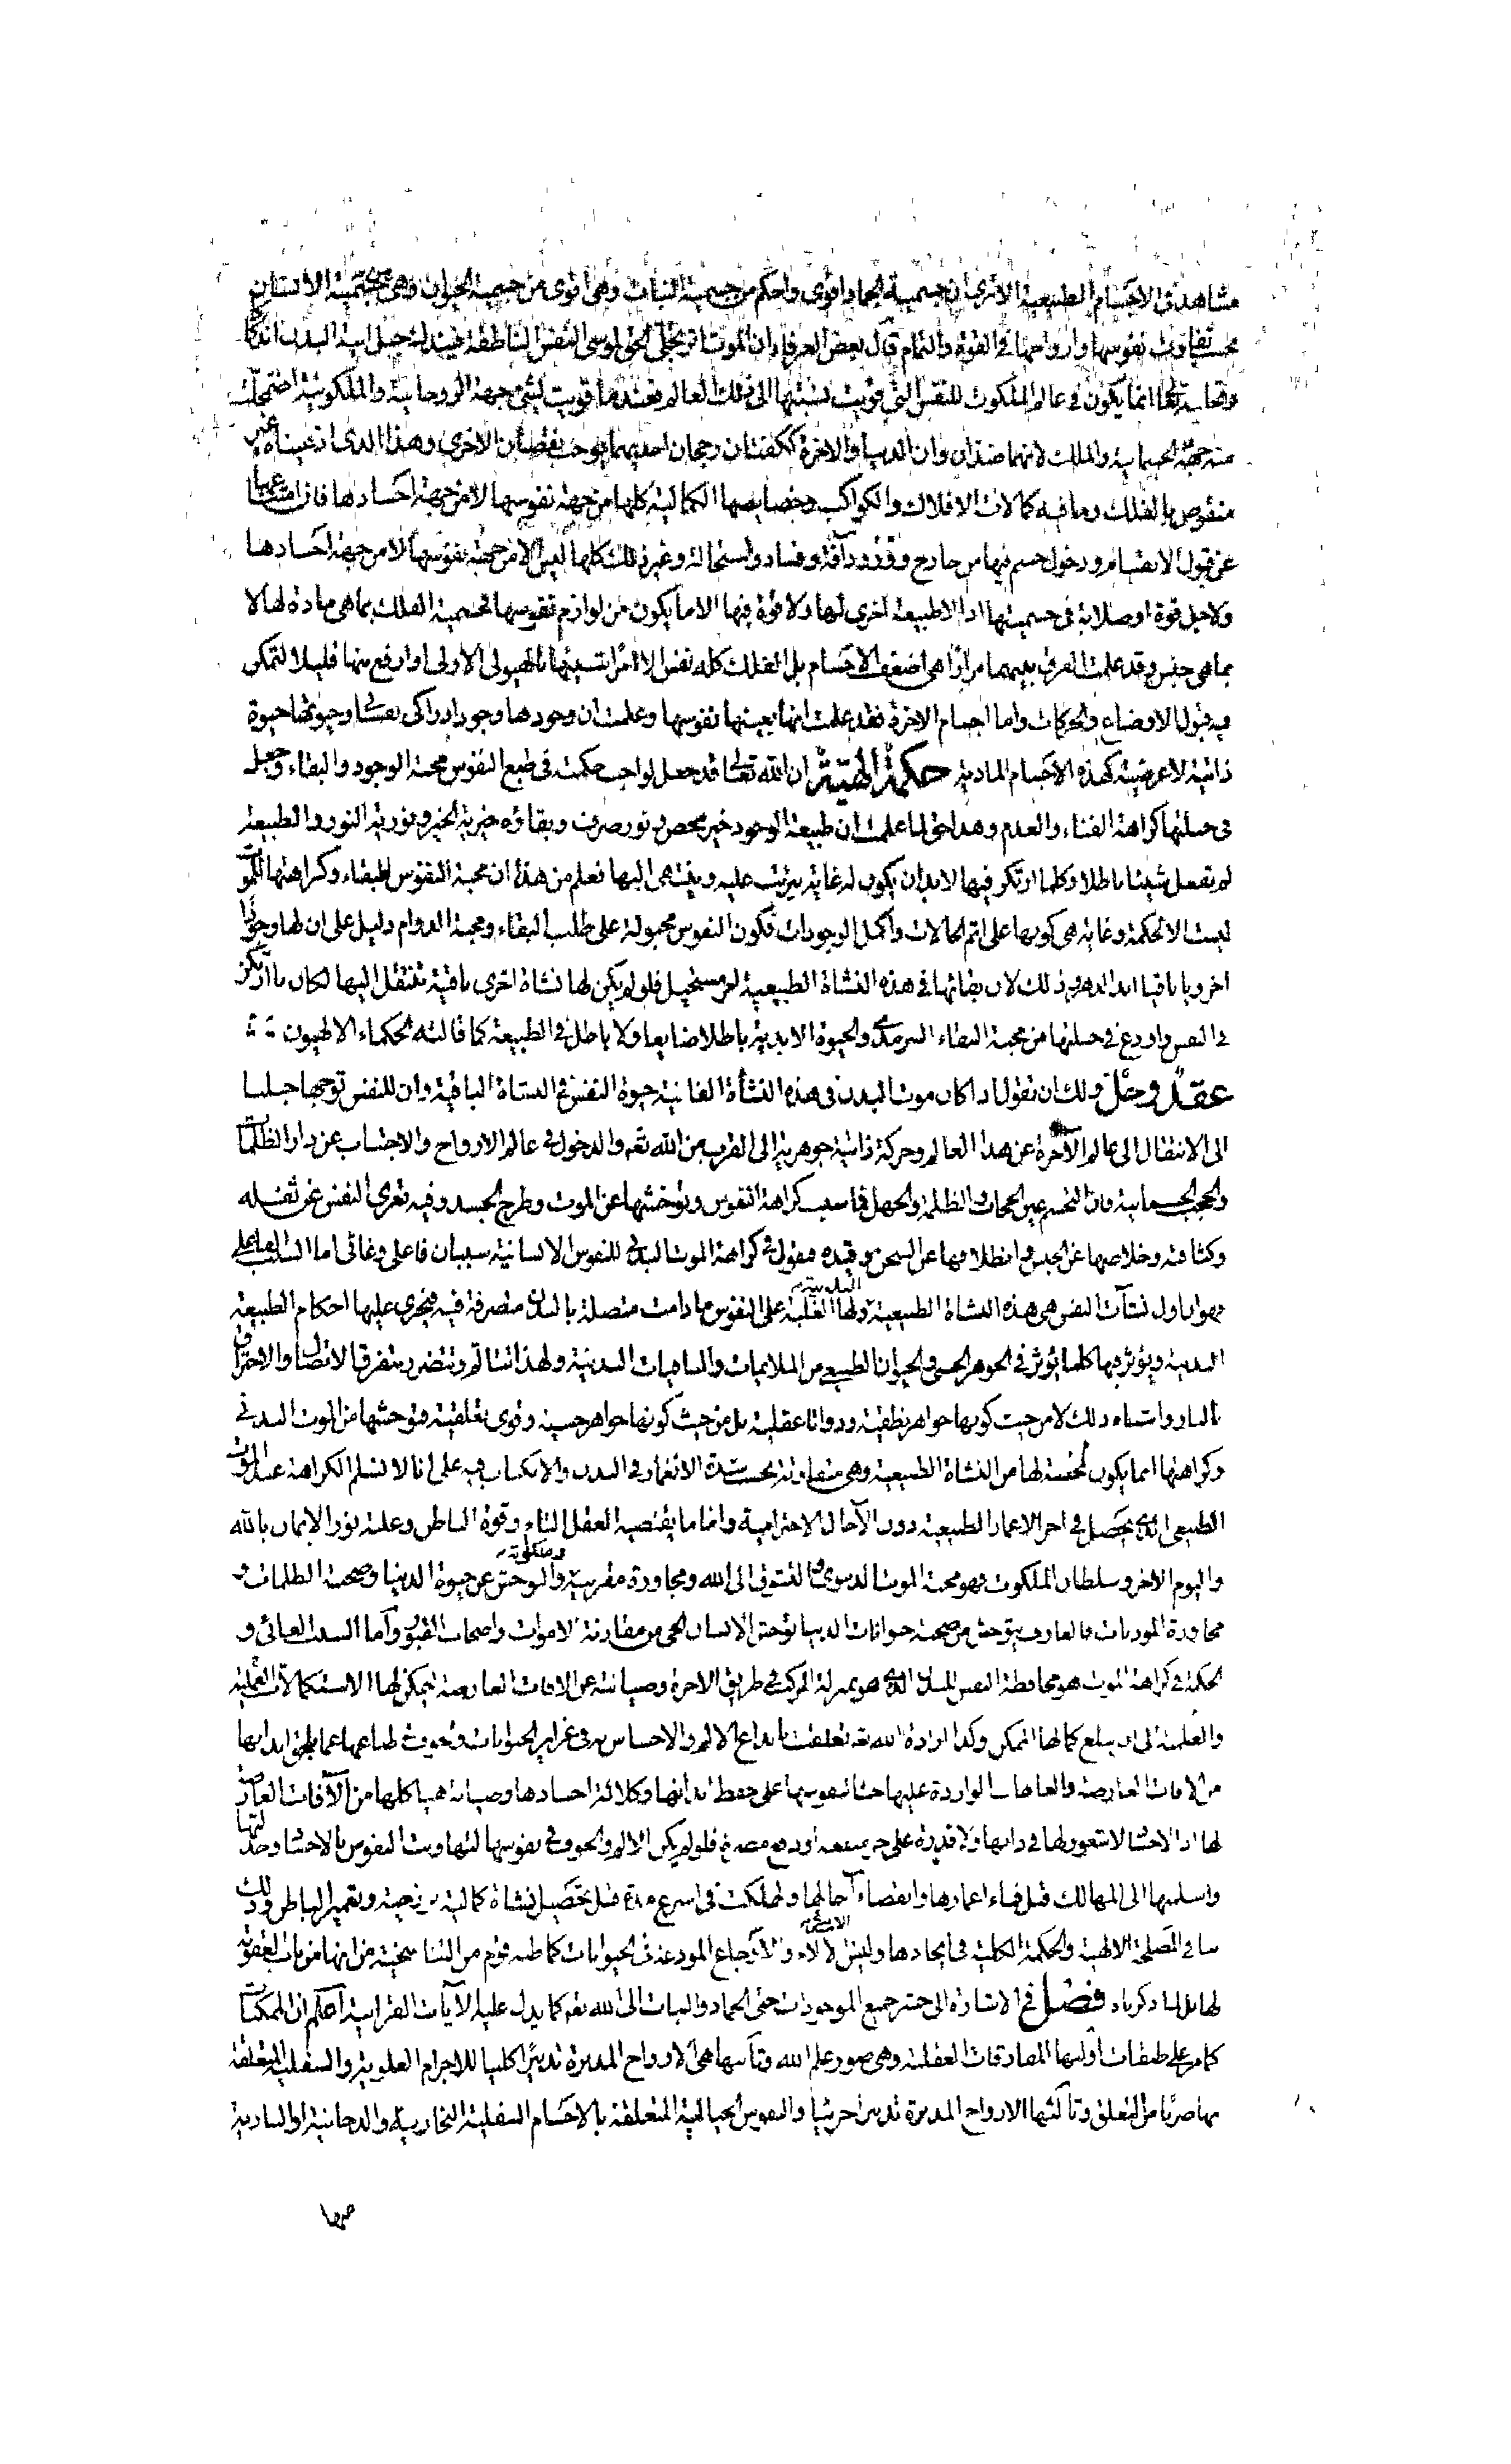 مشاهد فى الاجسام الطبيعية الا ترى ان جسمية الجماد اقوى واحكم من جسمية النبات وهى اقوى من جسمية الحيوان وهى من جسمية الانسان
بحسب تفاوت نفوسها وارواحها فى القوة والتمام قال بعض العرفاء ان الموت اثر تجلى الحق لموسى النفس الناطقة فيندك جبل انية البدن اندكاكا
انما يكون فى عالم الملكوت للنفس التى قويت نسبتها الى ذلك العالم فعندما قويت لشىء جهة الروحانية والملكوتية اضمحلت
منه جهة الجسمانية والملك لانهما ضدان وان الدنيا والاخرة ككفتان رجحان احديهما يوجب نقصان الاخرى وهذا الذى ادعيناه غير
منقوض بالفلك وما فيه كمالات الافلاك والكواكب وخصايصها الكمالية كلها من جهة نفوسها لا من جهة اجسادها فان امتناعها
عن قبول الانقسام ودخول جسم فيها من خارج وآفة وفساد واستحالة وغير ذلك كلها ليس الا من جهة نفوسها لا من جهة اجسادها
ولاجل قوة او صلابة فى جسميتها اذ لا طبيعة اخرى لها ولا قوة فيها الا ما يكون من لوازم نفوسها فجسمية الفلك بما هى مادة لها لا
بما هى جنس وقد علمت الفرق بينهما مرارا هى اضعف الاجسام بل الفلك كله نفس الا امرا نسبتها بالهيولى الاولى او ارفع منها قليلا لتمكن
فيه قبول الاوضاع والحركات واما اجسام الاخرة فقد علمت انها بعينها نفوسها وعلمت ان وجودها وجود ادراكى نفسانى وحيوتها حيوة
ذاتية لا عرضية كهذه الاجسام المادية حكمة الهية ان الله تعالى قد جعل لواجب حكمته فى طبع النفوس محبة الوجود والبقاء وجعل
فى جبلتها كراهة الفناء والعدم وهذا حق لما علمت ان طبيعة الوجود خير محض ونور صرف وبقاؤه خيرية الخير ونورية النور والطبيعة
لم تفعل شيئا باطلا وكلما ارتكز فيها لا بد ان يكون له غاية يترتب عليه وينتهى اليها فعلم من هذا ان محبة النفوس للبقاء وكراهتها للموت
ليست الا لحكمة وغاية هى كونها على اتم الحالات واكمل الوجودات فكون النفوس مجبولة على طلب البقاء ومحبة الدوام دليل على ان لها وجودا
اخرويا باقيا ابد الدهر وذلك لان بقائها فى هذه النشاة الطبيعية امر مستحيل فلو لم يكن لها نشاة اخرى باقية تنتقل اليها لكان ما ارتكز
فى النفس واودع فى جبلتها من محبة البقاء السرمدى والحيوة الابدية باطلا ضايعا ولا باطل فى الطبيعة كما قالته الحكماء الالهيون
عقد وحل ولك ان تقول اذا كان موت البدن فى هذه النشأة الفانية حيوة النفس فى النشاة الباقية وان للنفس توجها جبليا
الى الانتقال الى عالم الاخرة عن هذا العالم وحركة ذاتية جوهرية الى القرب من الله تعه والدخول فى عالم الارواح والاجتناب عن دار الظلمات
والحجب الجسمانية فان التجسم عين الحجاب والظلمة والجهل فما سبب كراهة النفوس وتوحشها عن الموت وطرح الجسد وفيه تعرى النفس عن ثقله
وكثافته وخلاصها عن الحبس وانطلاقها عن السجن وقيده فنقول فى كراهة الموت البدنى للنفوس الانسانية سببان فاعلى وغائى اما السبب الفاعلى
فهو ان اول نشآت النفس هى هذه النشاة الطبيعية البدنية ولها الغلبة على النفوس ما دامت متصلة بالبدن متصرفة فيه فيجرى عليها احكام الطبيعة
البدنية ويؤثر فيها كلما يؤثر فى الجوهر الحسى والحيوان الطبيعى من الملايمات والمنافيات البدنية ولهذا تتالم وتتضرر بتفرق الاتصال والاحتراق
بالنار واشباه ذلك لا من حيث كونها جواهر نطقية وذواتا عقلية بل من حيث كونها جواهر حسية وقوى تعلقية فتوحشها من الموت البدنى
وكراهتها انما يكون لحصة لها من النشاة الطبيعية وهى متفاوتة بحسب شدة الانغمار فى البدن والانكباب فيه على انا لا نسلم الكراهة عند الموت
الطبيعى الذى يحصل فى اخر الاعمار الطبيعية دون الآجال الاخترامية واما ما يقتضيه العقل التام وقوة الباطن وغلبة نور الايمان بالله
واليوم الاخر وسلطان الملكوت فهو محبة الموت الدنيوى والتشوق الى الله ومجاورة مقربيه وملكوته والتوحش عن حيوة الدنيا وصحبة الظلمات و
مجاورة الموذيات فالعارف يتوحش من صحبة حيوانات الدنيا توحش الانسان الحى من مقارنة الاموات واصحاب القبور وآما السبب الغائى و
الحكمة فى كراهة الموت هو محافظة النفس للبدن الذى هو بمنزلة المركب فى طريق الاخرة وصيانته عن الافات العارضة ليمكن لها الاستكمالات العلمية
والعملية الى ان يبلغ كمالها الممكن وكذا ارادة الله تعه تعلقت بابداع الالم والاحساس به فى غرايز الحيوانات والخوف فى طباعها عما يلحق ابدانها
من الافات العارضة والعاهات الواردة عليها حثا لنفوسها على حفظ ابدانها وكلائة اجسادها وصيانة هياكلها من الآفات العارضة
لها اذ الاجساد لا شعور لها فى ذاتها ولا قدرة على جر منفعة او دفع مضرة فلو لم يكن الالم والخوف فى نفوسها لتهاونت النفوس بالاجساد وخذلتها
واسلمتها الى المهالك قبل فناء اعمارها وانقضاء آجالها ولهلكت فى اسرع مدة قبل تحصيل نشاة كمالية برزخية وتعمير الباطن وذلك
ينافى المصلحة الالهية والحكمة الكلية فى ايجادها وليس الالآم والاوجاع المودعة فى الحيوانات كما ظنه قوم من التناسخية من انها من باب العقوبة
لها بل لما ذكرناه فصل فى الاشارة الى حشر جميع الموجودات حتى الجماد والنبات الى الله تعه كما يدل عليه الآيات القرانية اعلم ان الممكنات
كما مر على طبقات اوليها المفارقات العقلية وهى صور علم الله وثانيها هى الارواح المدبرة تدبيرا كليا للاجرام العلوية والسفلية المتعلقة
بها ضربا من التعلق وثالثها الارواح المدبرة تدبيرا جزئيا والنفوس الخيالية المتعلقة بالاجسام السفلية البخارية والدخانية او النارية